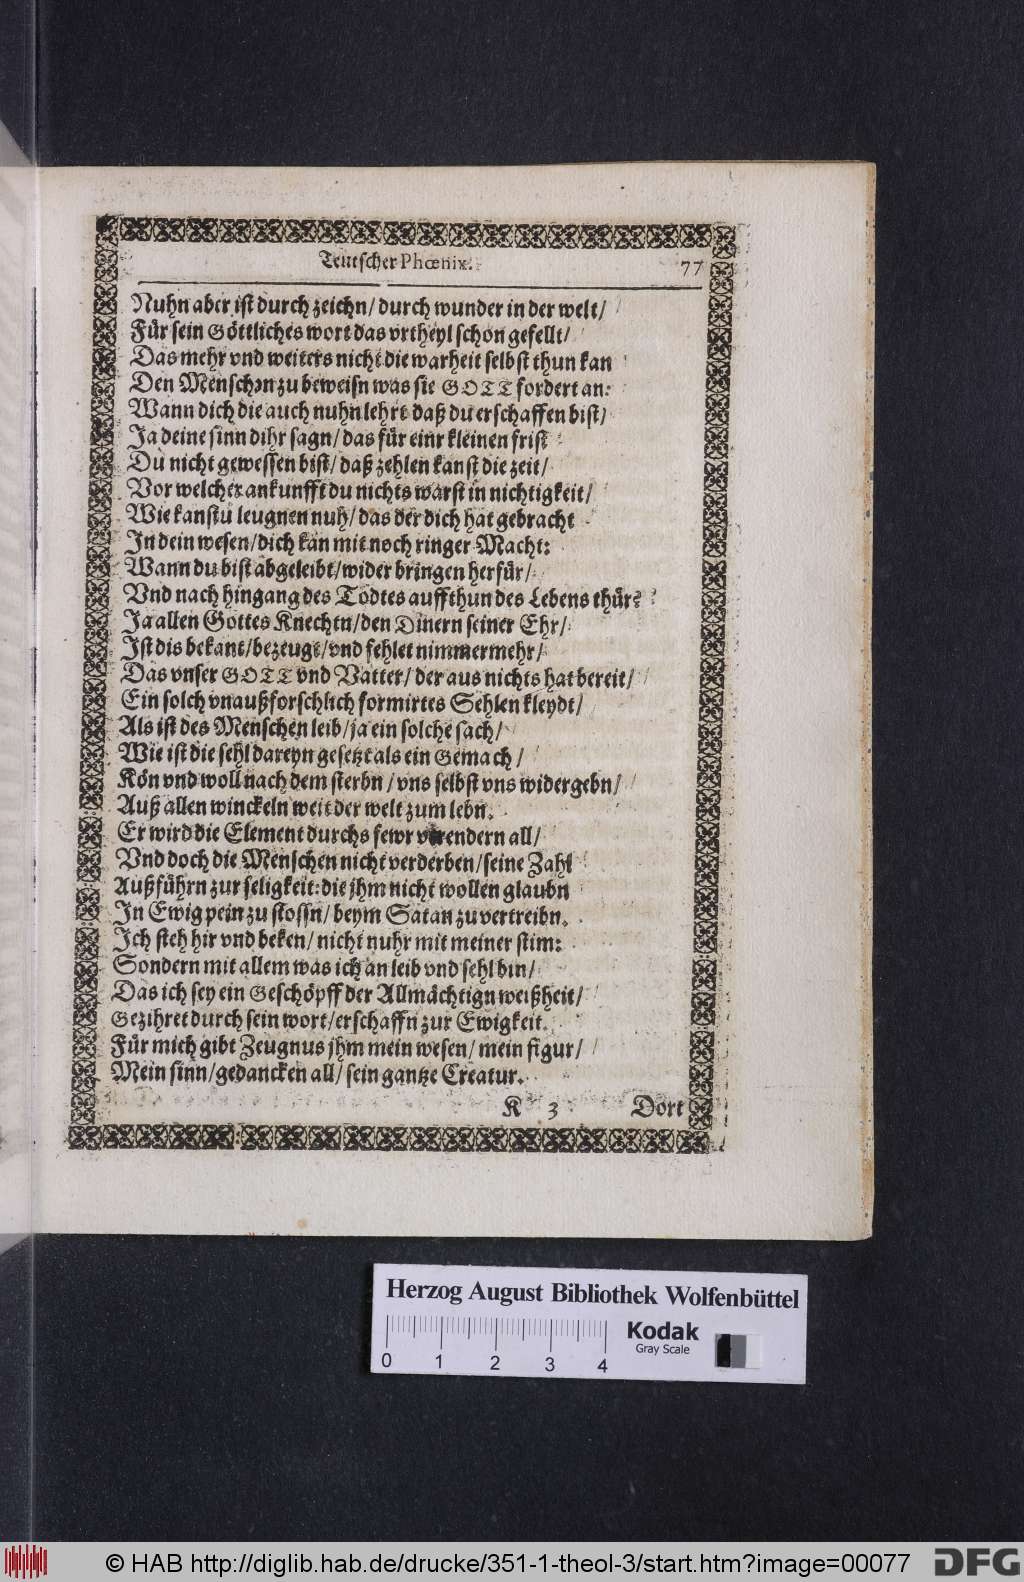 Teutscher Phœnix. 77
Nuhn aber ist durch zeichn/ durch wunder in der welt/
Für sein Göttliches wort das vrtheyl schon gefellt/
Das mehr vnd weiters nicht die warheit selbst thun kan
Den Menschen zu beweisn was sie GOTT fordert an:
Wann dich die auch nuhn lehrt daß du erschaffen bist/
Ja deine sinn dihr sagn/ das für einr kleinen frist
Du nicht gewessen bist/ daß zehlen kanst die zeit/
Vor welcher ankunfft du nichts warst in nichtigkeit/
Wie kanstu leugnen nuh/ das der dich hat gebracht
In dein wesen/ dich kan mit noch ringer Macht:
Wann du bist abgeleibt/ wider bringen herfür/
Vnd nach hingang des Todtes auffthun des Lebens thür?
Ja allen Gottes Knechtn/ den Dinern seiner Ehr/
Ist dis bekant/ bezeugt/ vnd fehlet nimmermehr/
Das vnser GOTT vnd Vatter/ der aus nichts hat bereit/
Ein solch vnaußforschlich formirtes Sehlen kleydt/
Als ist des Menschen leib/ ja ein solche sach/
Wie ist die sehl dareyn gesetzt als ein Gemach/
Kön vnd woll nach dem sterbn/ vns selbst vns widergebn/
Auß allen winckeln weit der welt zum lebn.
Er wird die Element durchs fewr verendern all/
Vnd doch die Menschen nicht verderben/ seine Zahl
Außführn zur seligkeit: die jhm nicht wollen glaubn
In Ewig pein zu stossn/ beym Satan zu vertreibn.
Ich steh hir vnd beken/ nicht nuhr mit meiner stim:
Sondern mit allem was ich an leib vnd sehl bin/
Das ich sey ein Geschöpff der Allmächtign weißheit/
Gezihret durch sein wort/ erschaffn zur Ewigkeit.
Für mich gibt Zeugnus jhm mein wesen/ mein figur/
Mein sinn/ gedancken all/ sein gantze Creatur.
K 3 Dort
Herzog August Bibliothek Wolfenbüttel
Kodak
Gray Scale
0 1 2 3 4
© HAB http://diglib.hab.de/drucke/351-1-theol-3/start.htm?image=00077
DFG